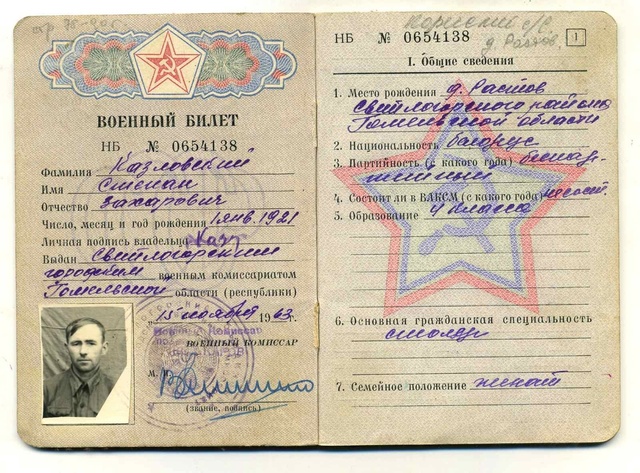 ВОЕННЫЙ БИЛЕТ
НБ № 0654138
Фамилия Казловский
Имя Степан
Отчество Захарович
Число, месяц и год рождения 1 янв. 1921
Личная подпись владельца Казл
Выдан Светлогорским
городским военным комиссариатом
Гомельской области (республики)
"15" ноября 1963 г.
Военный Комиссар
ВОЕННЫЙ КОМИССАР
М. П.
(звание, подпись)
д. Раствов
НБ № 0654138
1
I. Общие сведения
1. Место рождения д. Раствов
Светлогорского района
Гомельской области
2. Национальность белорус
3. Партийность (с какого года) беспар-
тийный
4. Состоит ли в ВЛКСМ (с какого года)
5. Образование 4 класса
6. Основная гражданская специальность
столяр
7. Семейное положение женат